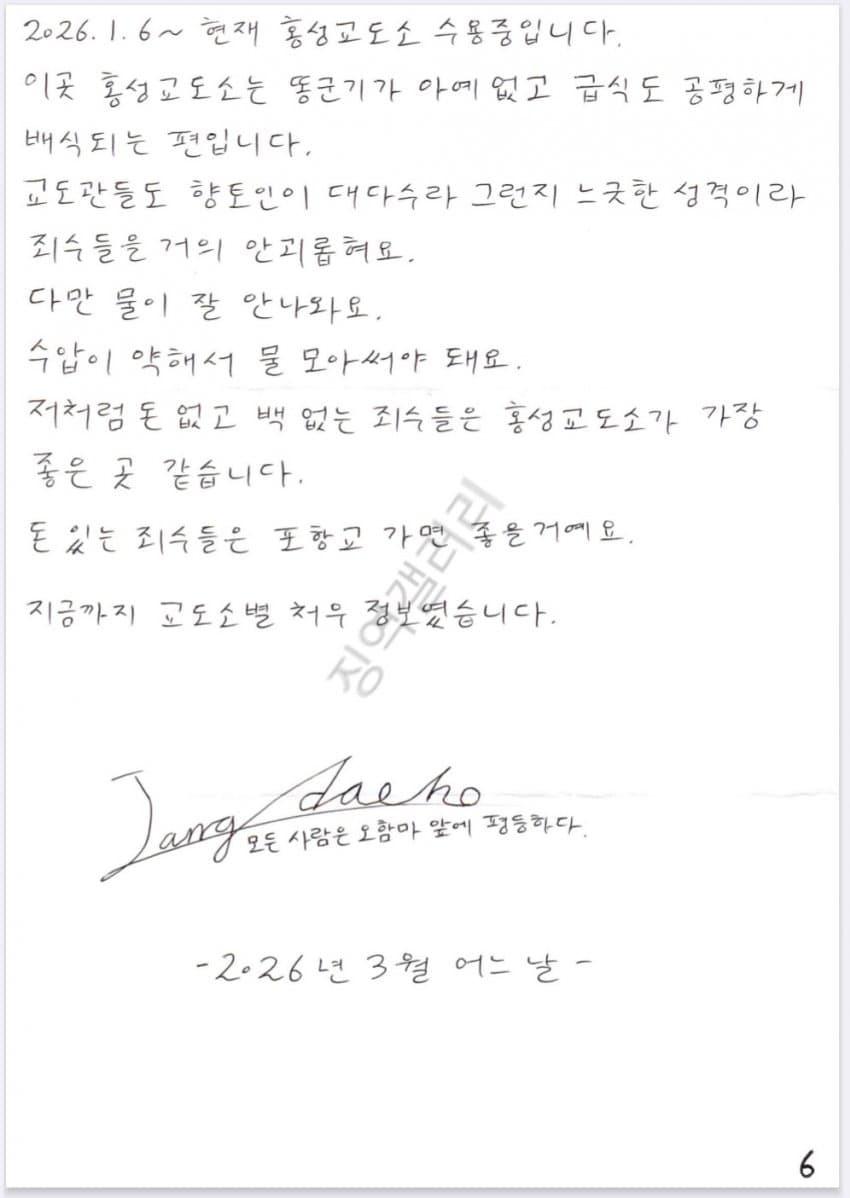 2026.1.6~ 현재 홍성교도소 수용중입니다.
이곳 홍성교도소는 똥군기가 아예 없고 급식도 공평하게
배식되는 편입니다.
교도관들도 향토인이 대다수라 그런지 느긋한 성격이라
죄수들을 거의 안괴롭혀요.
다만 물이 잘 안나와요.
수압이 약해서 물 모아써야 돼요.
저처럼 돈 없고 백 없는 죄수들은 홍성교도소가 가장
좋은 곳 같습니다.
돈 있는 죄수들은 포항교 가면 좋을거예요.
지금까지 교도소별 처우 정보였습니다.
징역갤러리
Jang daeho
모든 사람은 오함마 앞에 평등하다.
-2026년 3월 어느 날-
6